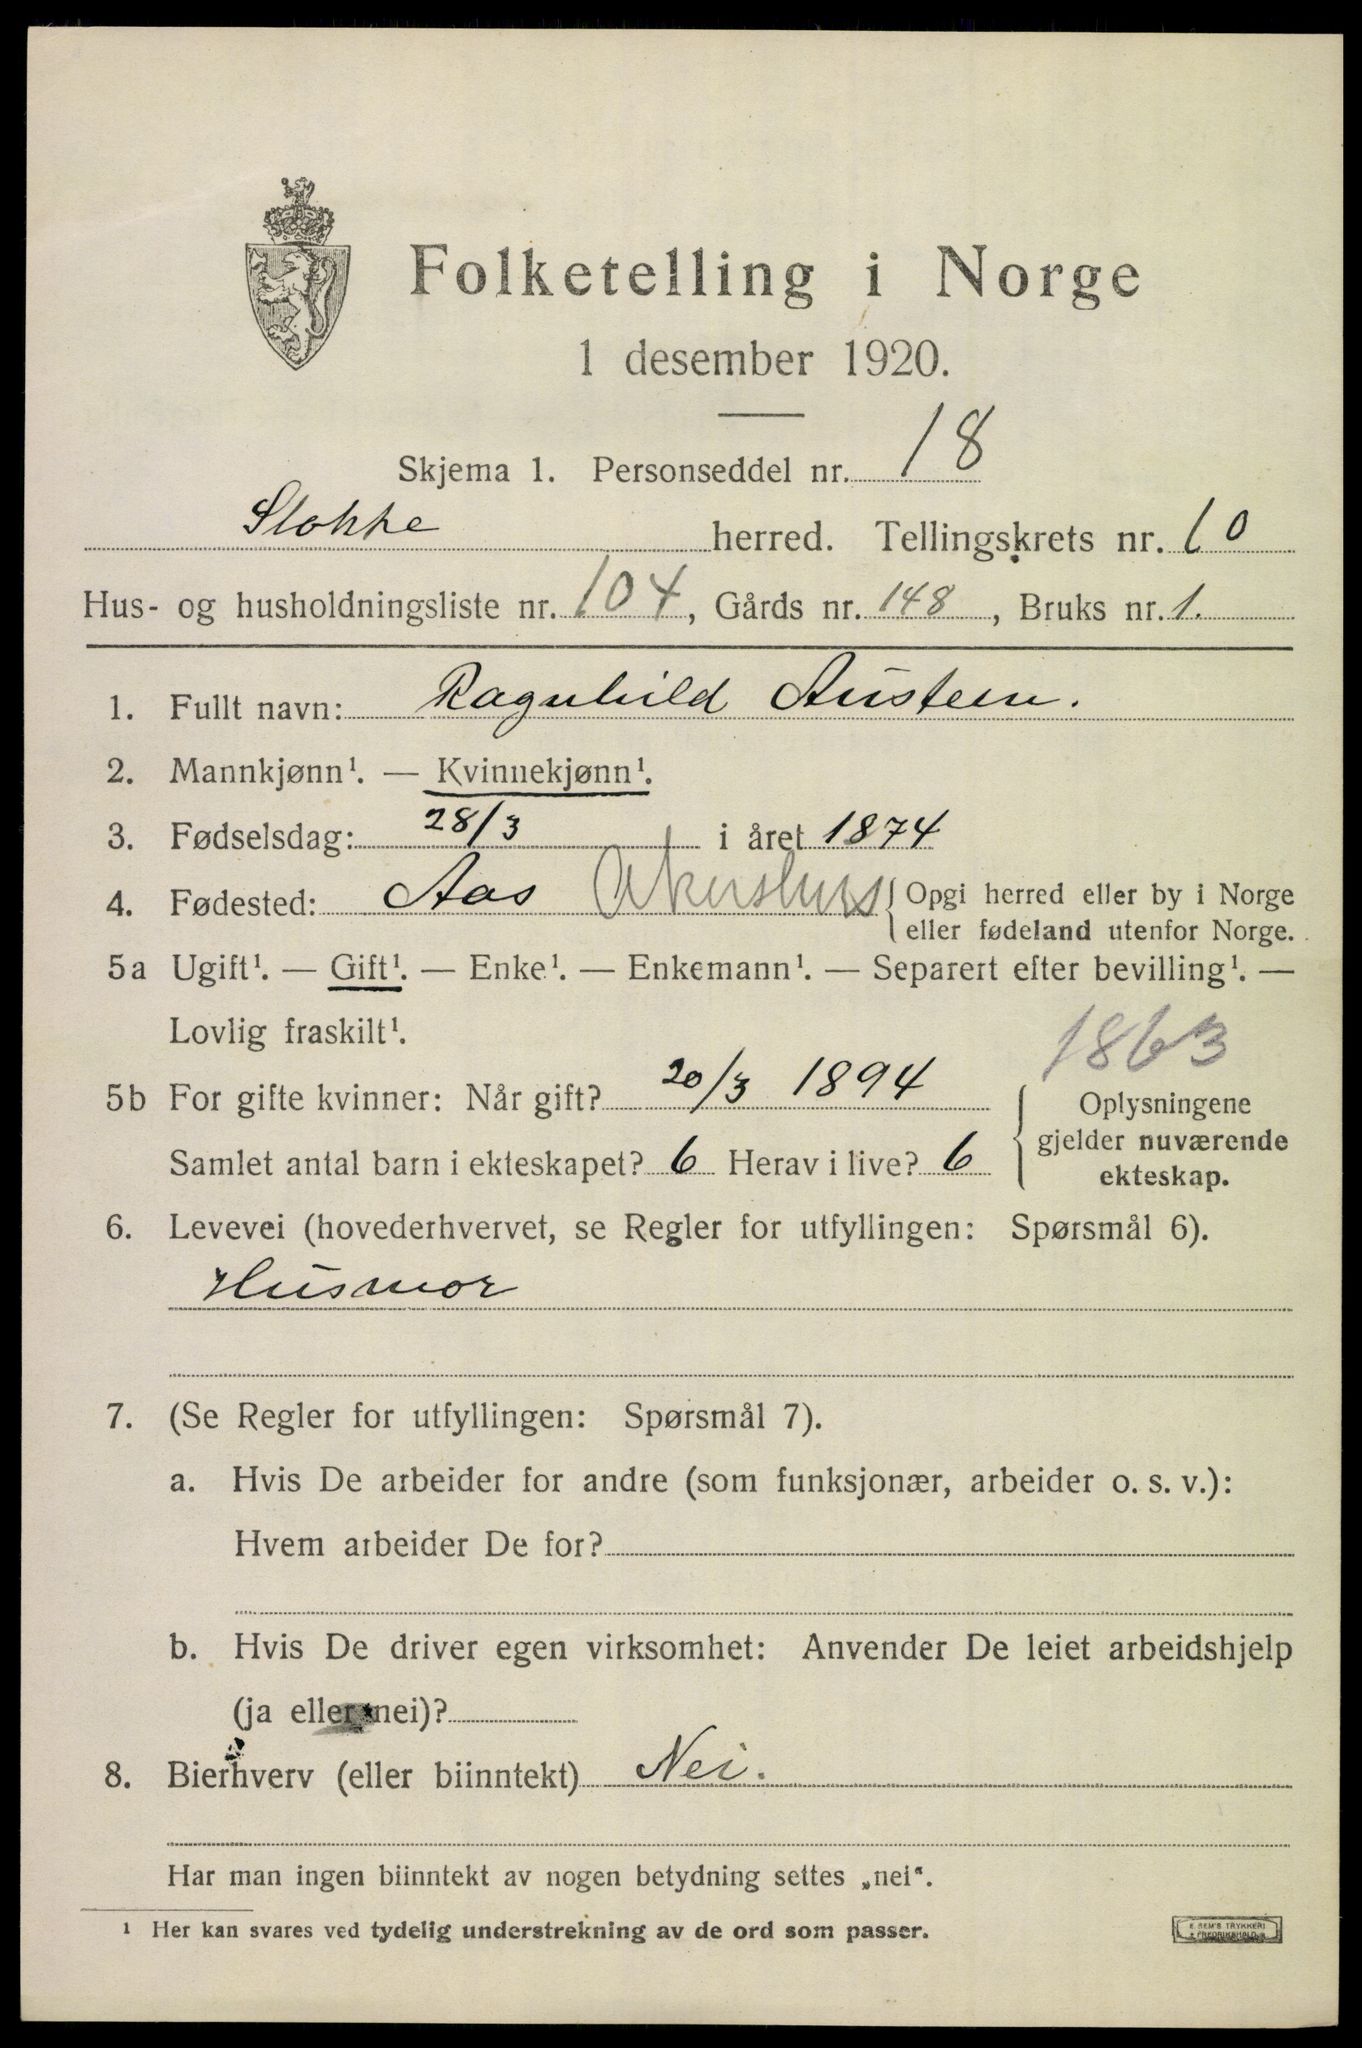 Folketelling i Norge
1 desember 1920.
Skjema 1. Personseddel nr. 18
Stokke herred. Tellingskrets nr. 10
Hus- og husholdningsliste nr. 104, Gårds nr. 148, Bruks nr. 1.
1. Fullt navn: Ragnhild Austeen.
2. Mannkjønn¹. — Kvinnekjønn¹.
3. Fødselsdag: 28/3 i året 1874
4. Fødested: Aas Akershus { Opgi herred eller by i Norge
eller fødeland utenfor Norge.
5a Ugift¹. — Gift¹. — Enke¹. — Enkemann¹. — Separert efter bevilling¹. —
Lovlig fraskilt¹.
1863
5b For gifte kvinner: Når gift? 20/3 1894
Samlet antal barn i ekteskapet? 6 Herav i live? 6
Oplysningene
gjelder nuværende
ekteskap.
6. Levevei (hovederhvervet, se Regler for utfyllingen: Spørsmål 6).
Husmor
7. (Se Regler for utfyllingen: Spørsmål 7).
a. Hvis De arbeider for andre (som funksjonær, arbeider o. s. v.):
Hvem arbeider De for?
b. Hvis De driver egen virksomhet: Anvender De leiet arbeidshjelp
(ja eller nei)?
8. Bierhverv (eller biinntekt) Nei.
Har man ingen biinntekt av nogen betydning settes „nei“.
¹ Her kan svares ved tydelig understrekning av de ord som passer.
E. SEM'S TRYKKERI
FREDRIKSHALD